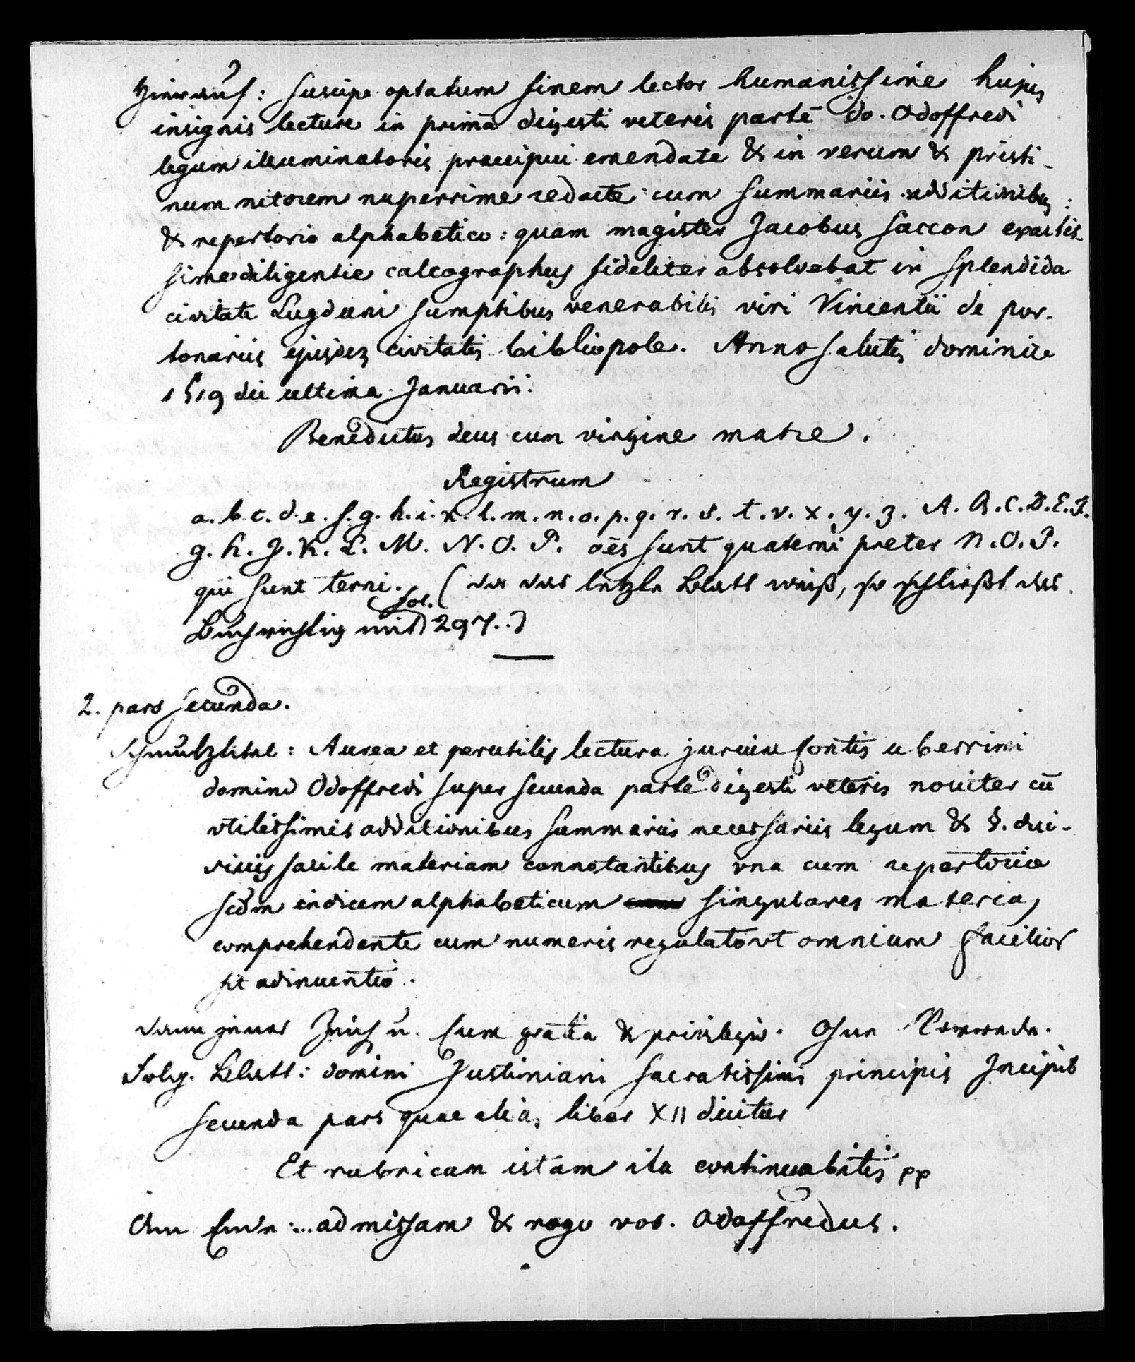 Hierauf: Suscipe optatum finem lector humanissime hujus
insignis lecture in primā digesti veteris partē do. Odoffredi
legum illuminatoris precipui emendate & in verum & pristi-
num nitorem nuperrime redacte: cum summariis additionibus:
& repertorio alphabetico: quam magister Jacobus Saccon exactis-
sime diligentie calcographus fideliter absolvebat in splendida
civitate Lugduni sumptibus venerabilis viri Vincentii de por-
tonariis ejusdez civitatis bibliopole. Anno salutis dominice
1519 die ultima Januarii.
Benedictus deus cum virgine matre.
Registrum
a. b. c. d. e. f. g. h. i. k. l. m. n. o. p. q. r. s. t. v. x. y. z. A. B. C. D. E. F.
G. H. J. K. L. M. N. O. P. oēs sunt quaterni preter N. O. P.
qui sunt terni. (da das letzte Blatt weiß, so schließt das
Buch richtig mit fol. 297..)
2. pars secunda.
Schmutztitel: Aurea et perutilis lectura juriū fontis uberrimi
domini Odoffredi super secunda parte digesti veteris noviter cū
vtilissimis additionibus summariis necessariis legum & §. dui-
sionis facile materiam connotantibus vna cum repertorio
scdm indicem alphabeticum singulares materias
comprehendente cum numeris regulato vt omnium facilior
sit adinuentio.
dann Cum gratia & privilegio. Ohne
Folg. Blatt: domini Justiniani sacratissimi principis Incipit
secunda pars quae alias liber XII dicitur
Et rubricam istam ita continuabitis pp
Am Ende: ... admissam & rogo vos. Odoffredus.